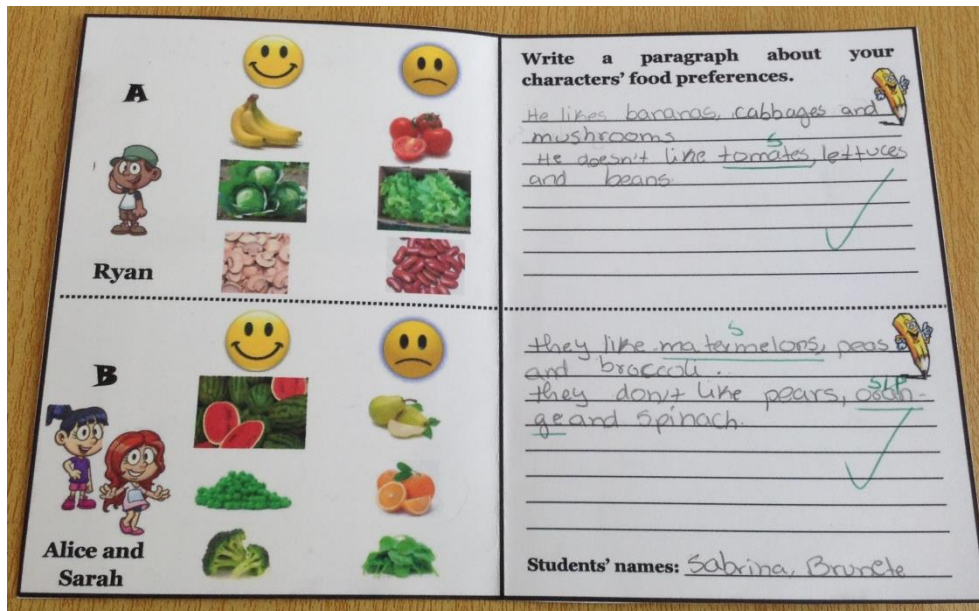 A
Ryan
B
Alice and
Sarah
Write a paragraph about your
characters' food preferences.
He likes bananas, cabbages and
mushrooms
S
He doesn't like tomates, lettuces
and beans.
S
they like matermelons, peas
and broccoli.
S/P
they don't like pears, osan-
ge and spinach.
Students' names: Sabrina, Brunete